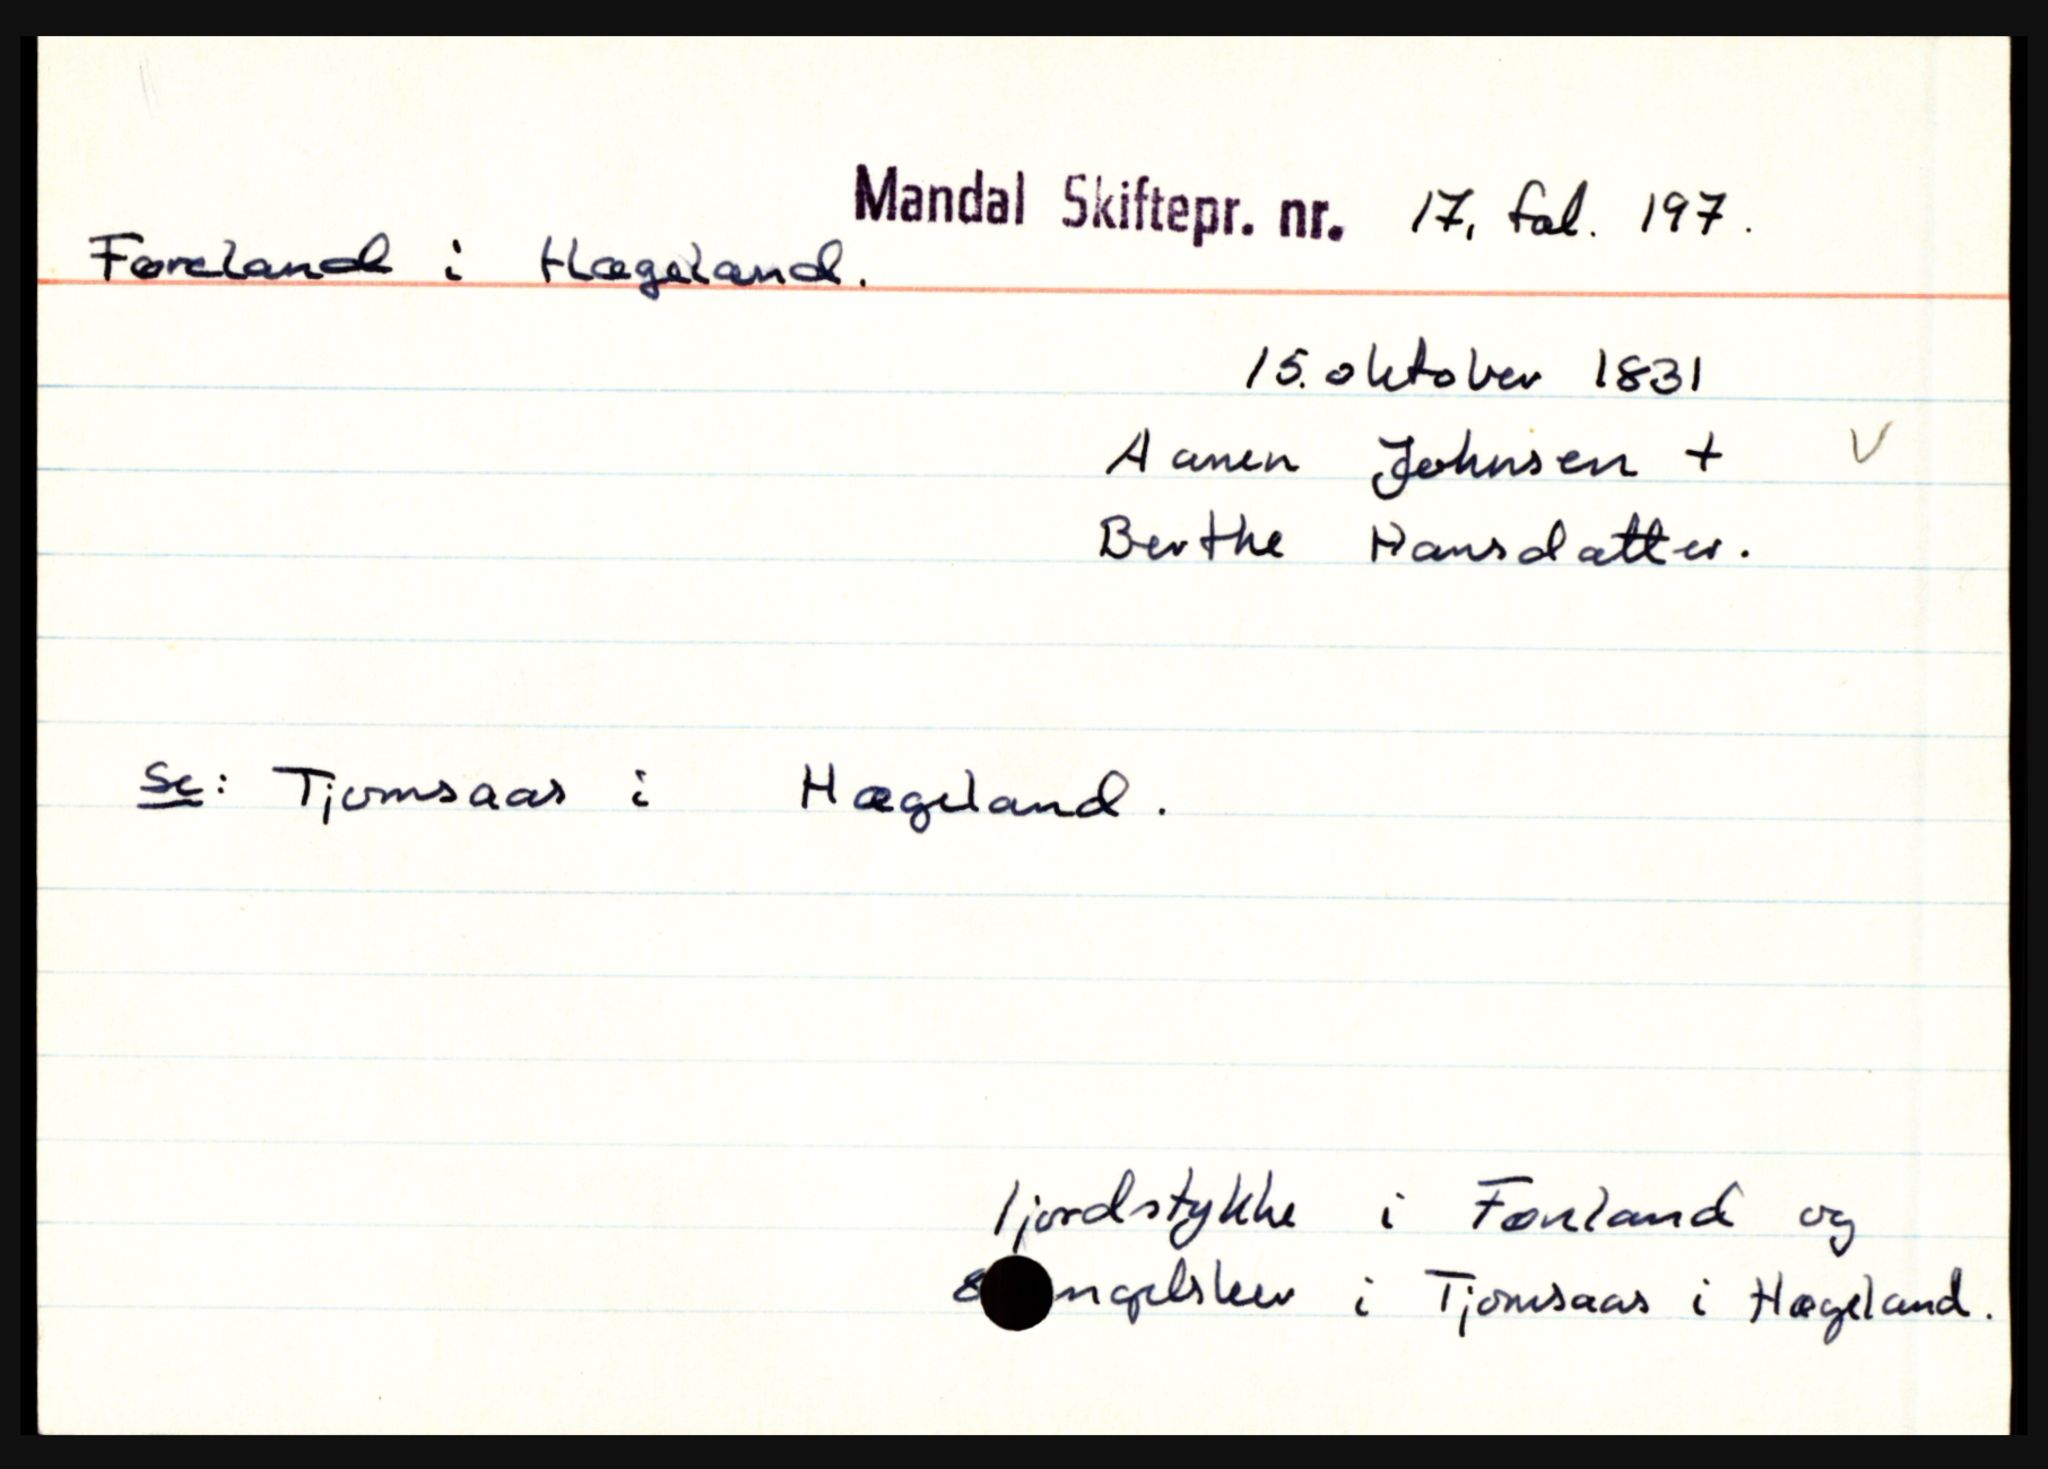 Mandal Skiftepr. nr. 17, fol. 197.
Føreland i Hægeland.
15. oktober 1831
Aanen Johnsen +
Berthe Hansdatter.
Se: Tjomsaas i Hægeland.
1 jordstykke i Føreland og
8 engelsker i Tjomsaas i Hægeland.